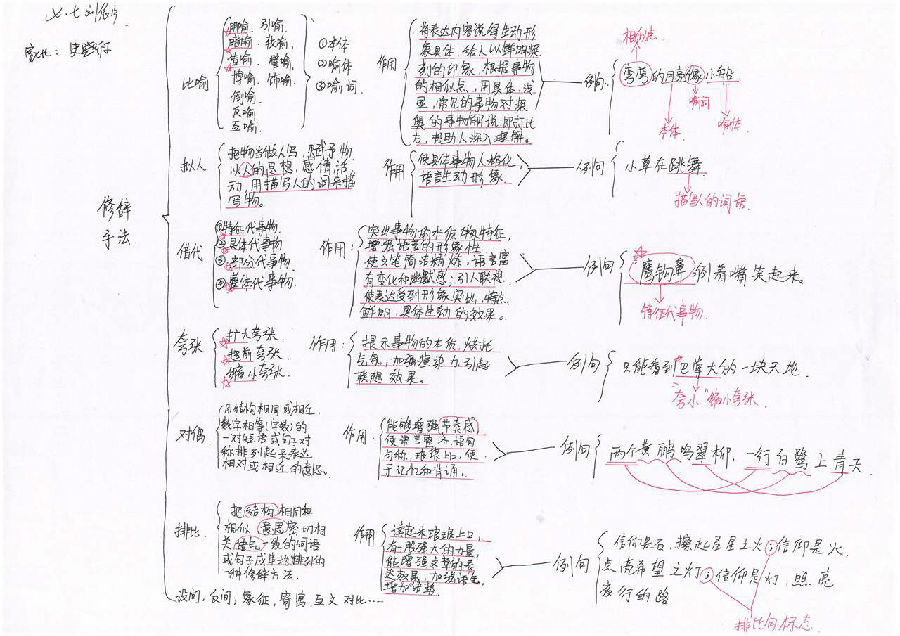 修辞手法
比喻
明喻. 引喻.
暗喻. 较喻.
借喻.
博喻. 饰喻.
倒喻.
反喻.
互喻.
①本体
②喻体
③喻词
作用
将表达内容说得生动形
象具体 给人以鲜明深
刻的印象. 根据事物
的相似点, 用具体, 浅
显, 常见的事物对深
奥的事物解说 即打比
方, 帮助人深入理解.
例句:
相似点
弯弯的月亮像小船
喻词
本体
喻体
拟人
把物当做人写, 赋予物
以人的思想 感情活
动, 用描写人的词来描
写物。
作用
使具体事物人格化,
语言生动形象.
例句
小草在跳舞
描写人的词语
借代
特征代事物.
具体代事物
部分代事物.
整体代事物.
作用:
突出事物的本质特征,
增强语言的形象性
使文笔简洁精炼, 语言富
有变化和幽默感; 引人联想,
使表达收到形象突出, 特点
鲜明, 具体生动的效果。
例句
鹰钩鼻倒着嘴笑起来。
特征代事物
夸张
扩大夸张.
超前夸张.
缩小夸张.
作用:
揭示事物的本质, 烘托
气氛, 加强渲染力引起
联想效果。
例句
只能看到巴掌大的一块天地.
夸小"缩小夸张
对偶
结构相同或相近,
数字相等(字数)的
一对短语或句子对
称排列起来表达
相对或相近的意思.
作用:
能够增强节奏感
便于记忆和背诵.
例句
两个黄鹂鸣翠柳, 一行白鹭上青天.
排比
把结构相同或
相似 意思密切相
关 语气一致的词语
或句子成串地排列的
一种修辞方法.
作用
读起来琅琅上口,
有极强大的力量,
能增强文章的表
达效果, 加强语气
例句
信仰是火,
点燃希望之灯, 信仰是灯, 照亮
夜行的路
排比句标志.
设问, 反问, 象征, 寄寓 互文 对比……